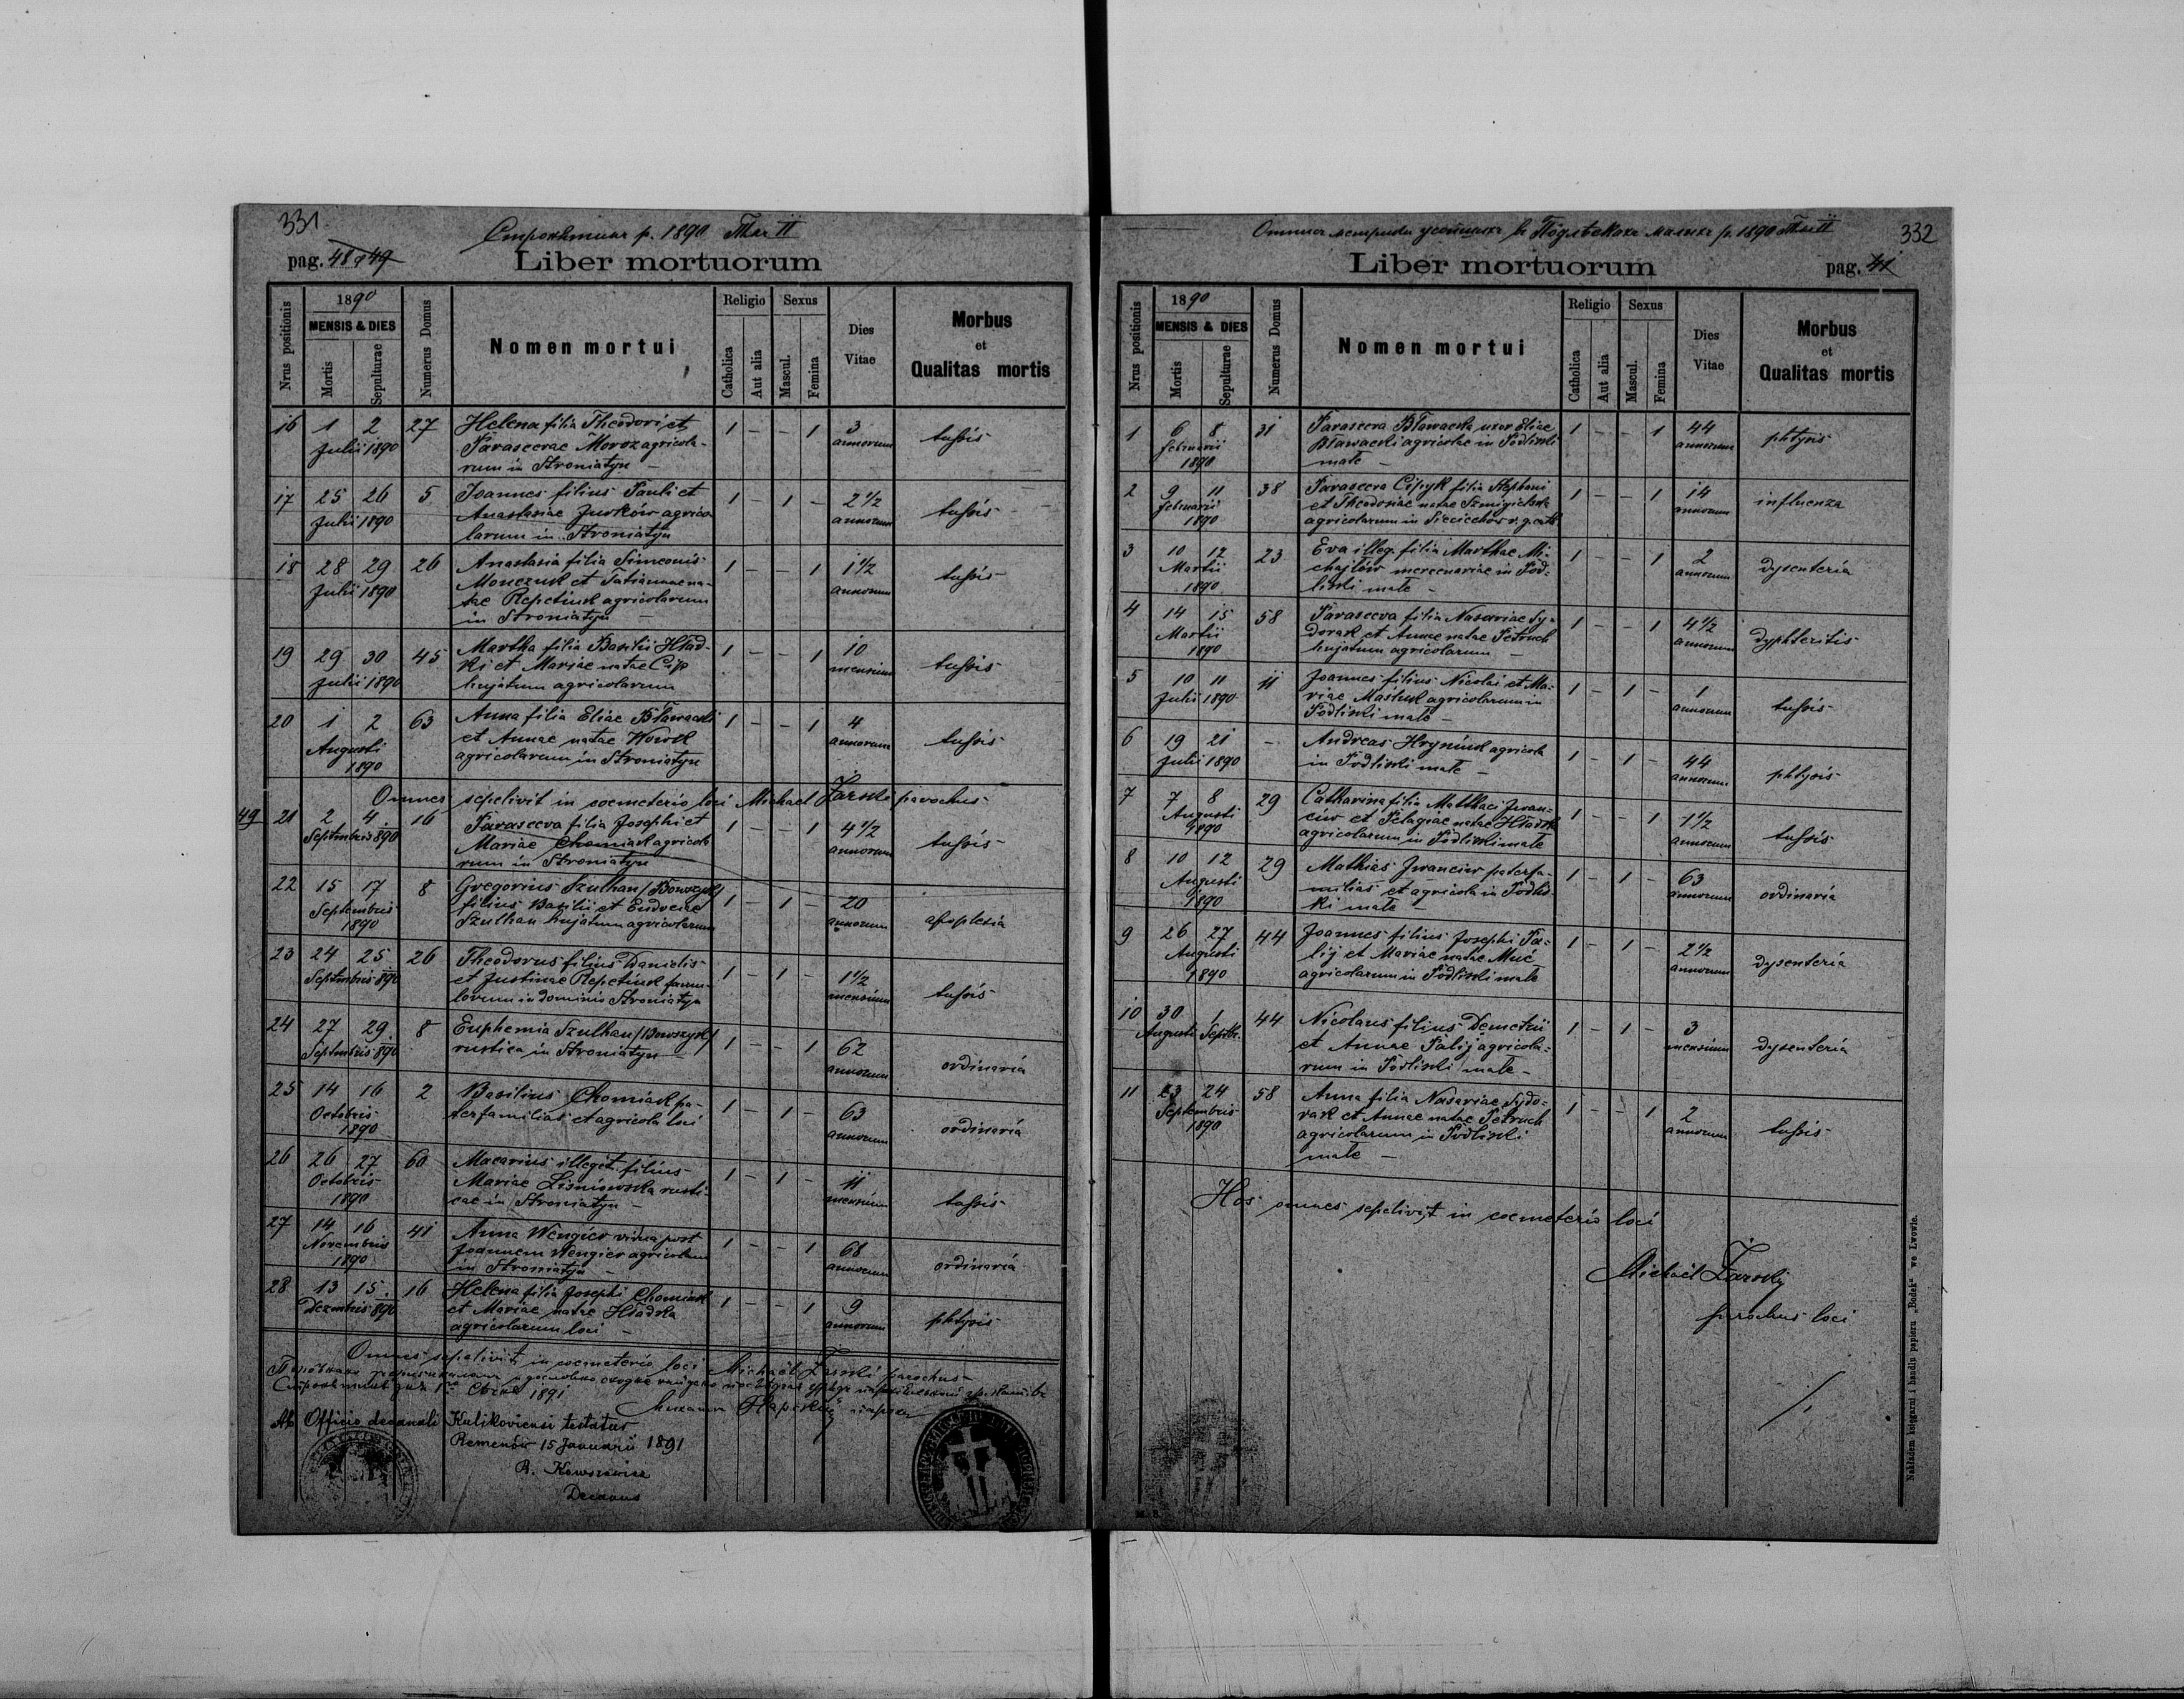 331
Строхмитин р. 1890 Том II
pag. 48 & 49
Liber mortuorum
Nrus positionis
1890
MENSIS & DIES
Mortis
Sepulturae
Numerus Domus
Nomen mortui
Religio
Catholica
Aut alia
Sexus
Mascul.
Femina
Dies
Vitae
Morbus
et
Qualitas mortis
16 1 2 27 Helena filia Theodori et 1 - - 1 3
Julii 1890 Parascevae Moroz agricola- annorum tussis
rum in Stroniatyn -
17 25 26 5 Joannes filius Pauli et 1 - 1 - 2 1/2
Julii 1890 Anastasiae Jurków agrico annorum tussis
larum in Stroniatyn
18 28 29 26 Anastasia filia Simeonis 1 - - 1 1 1/2
Julii 1890 Monczuk et Tatiannae na- annorum tussis
tae Repetiuk agricolarum
in Stroniatyn -
19 29 30 45 Martha filia Basilii Hład- 1 - - 1 10
Julii 1890 ki et Mariae natae Cip mensium tussis
hujatum agricolarum
20 1 2 63 Anna filia Eliae Bławacki 1 - - 1 4
Augusti et Annae natae Wowk annorum tussis
1890 agricolarum in Stroniatyn
Omnes sepelivit in coemeterio loci Michael Żarski parochus
49 21 2 4 16 Parasceva filia Josephi et 1 - - 1 4 1/2
Septembris 890 Mariae Chomiak agricola annorum tussis
rum in Stroniatyn
22 15 17 8 Gregorius Szulhan / 1 - 1 - 20
Septembris filius Basilii et Eudociae annorum apoplexia
1890 Szulhan hujatum agricolarum
23 24 25 26 Theodorus filius Danielis 1 - 1 - 1 1/2
Septembris 890 et Justinae Repetiuk famu- mensium tussis
lorum in dominio Stroniatyn
24 27 29 8 Euphemia Szulhan / 1 - - 1 62
Septembris 890 rustica in Stroniatyn annorum ordinaria
25 14 16 2 Basilius Chomiak pa- 1 - 1 - 63
Octobris terfamilias et agricola loci annorum ordinaria
1890
26 26 27 60 Macarius illegit. filius 1 - 1 - 11
Octobris Mariae Liśniowska rusti- mensium tussis
1890 cae in Stroniatyn -
27 14 16 41 Anna Wengier vidua post 1 - - 1 68
Novembris Joannem Wengier agricolam annorum ordinaria
1890 in Stroniatyn -
28 13 15 16 Helena filia Josephi Chomiak 1 - - 1 9
Dezembris 890 et Mariae natae Hładka annorum phtysis
agricolarum loci -
Omnes sepelivit in coemeterio loci Michaël Żarski parochus
1891
Ab Officio decanali Kulikoviensi testatur
Remenów 15 Januarii 1891
Decanus
332
р. 1890 Том II
Liber mortuorum
pag. 41
Nrus positionis
1890
MENSIS & DIES
Mortis
Sepulturae
Numerus Domus
Nomen mortui
Religio
Catholica
Aut alia
Sexus
Mascul.
Femina
Dies
Vitae
Morbus
et
Qualitas mortis
1 6 8 31 Parasceva Bławacka uxor Eliae 1 - - 1 44
Februarii Bławacki agricolae in Podliski annorum phtysis
1890 małe -
2 9 11 38 Parasceva Cipyk filia Stephani 1 - - 1 14
Februarii et Theodosiae natae Szmigielska annorum influenza
1890 agricolarum in Sieciechów r. g. cath
3 10 12 23 Eva illeg. filia Marthae Mi- 1 - - 1 2
Martii chajlów mercenariae in Pod- annorum dysenteria
1890 liski małe -
4 14 15 58 Parasceva filia Nasariae Sy- 1 - - 1 4 1/2
Martii dorak et Annae natae Petruch annorum dyphteritis
1890 hujatum agricolarum -
5 10 11 11 Joannes filius Nicolai et Ma- 1 - 1 - 1
Julii 1890 riae Maśluk agricolarum in annorum tussis
Podliski małe -
6 19 21 - Andreas Hryniuk agricola 1 - 1 - 44
Julii 1890 in Podliski małe - annorum phtysis
7 7 8 29 Catharina filia Matthaei Iwan- 1 - - 1 1 1/2
Augusti ciw et Pelagiae natae Hładka annorum tussis
1890 agricolarum in Podliski małe
8 10 12 29 Mathias Iwanciw paterfa- 1 - 1 - 63
Augusti milias et agricola in Podlis- annorum ordinaria
1890 ki małe -
9 26 27 44 Joannes filius Josephi Pa- 1 - 1 - 2 1/2
Augusti lij et Mariae natae Muć annorum dysenteria
1890 agricolarum in Podliski małe
10 30 1 44 Nicolaus filius Demetrii 1 - 1 - 3
Augusti Septbr. et Annae Palij agricola- mensium dysenteria
rum in Podliski małe -
11 23 24 58 Anna filia Nasariae Sydo- 1 - - 1 2
Septembris rak et Annae natae Petruch annorum tussis
1890 agricolarum in Podliski
małe -
Hos omnes sepelivit in coemeterio loci
Michaël Żarskij
parochus loci
Nakładem księgarni i handlu papieru „Bodek" we Lwowie.